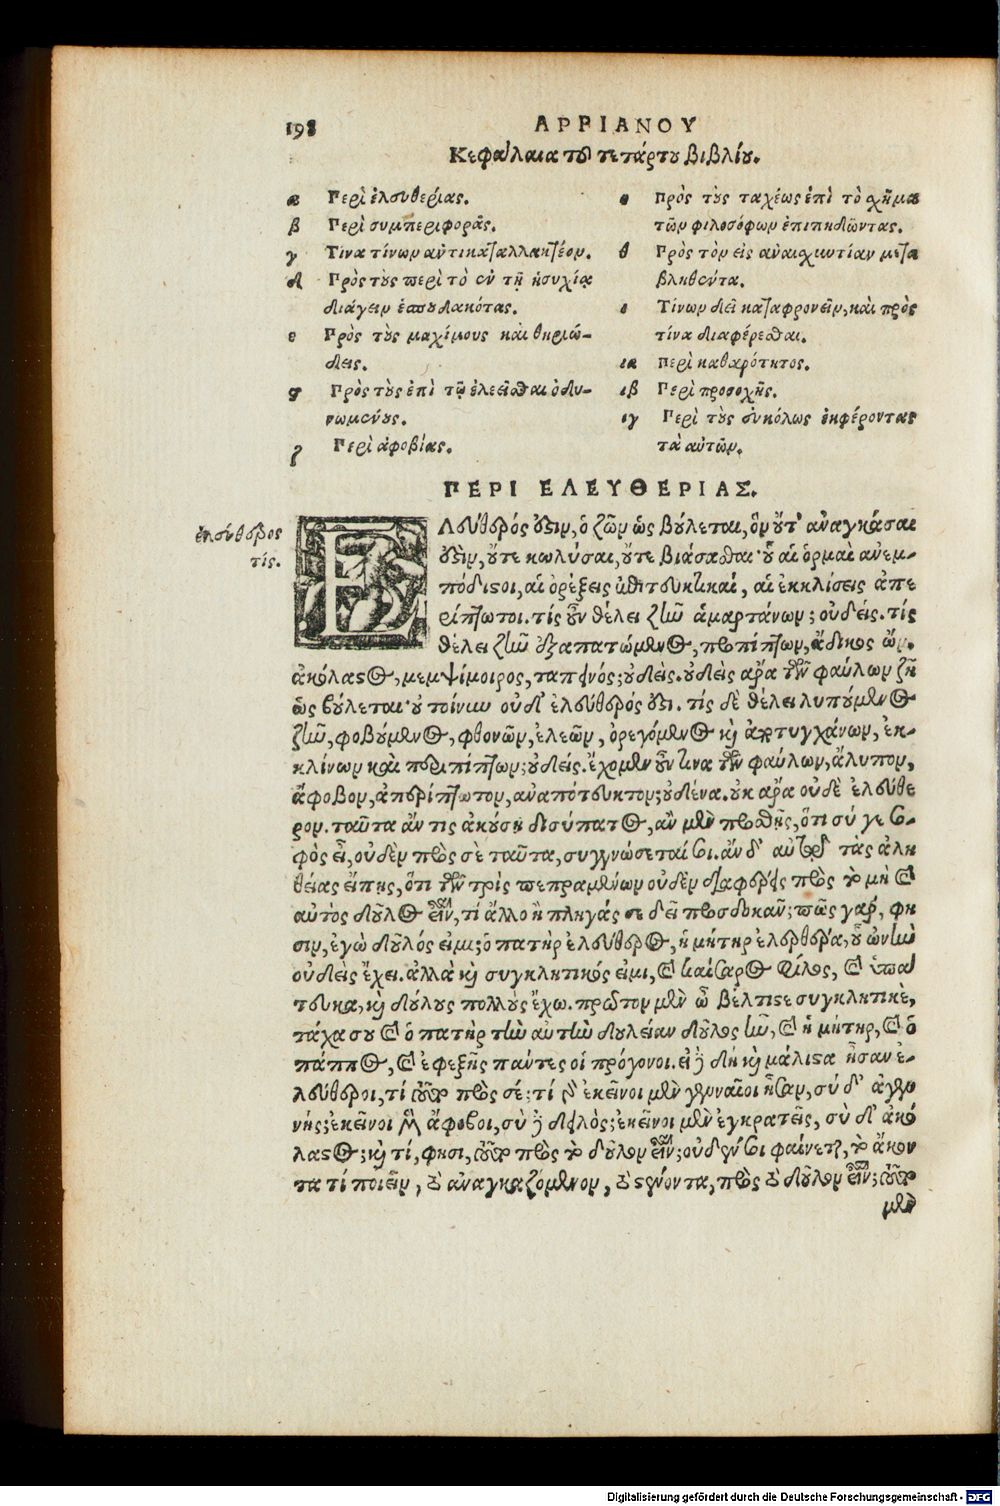 198
ΑΡΡΙΑΝΟΥ
Κεφάλαια τοῦ τετάρτου βιβλίου.
α Περὶ ἐλευθερίας.
β Περὶ συμπεριφορᾶς.
γ Τίνα τίνων ἀντικαταλλακτέον.
δ Πρὸς τοὺς περὶ τὸ ἐν τῇ ἡσυχίᾳ
διάγειν ἐσπουδακότας.
ε Πρὸς τοὺς μαχίμους καὶ θηριώ-
δεις.
ϛ Πρὸς τοὺς ἐπὶ τῷ ἐλεεῖσθαι ὀδυ-
νωμένους.
ζ Περὶ ἀφοβίας.
η Πρὸς τοὺς ταχέως ἐπὶ τὸ χῆμα
τῶν φιλοσόφων ἐπιπηδῶντας.
θ Πρὸς τὸν εἰς ἀναισχυντίαν μετα
βληθέντα.
ι Τίνων δεῖ καταφρονεῖν, καὶ πρὸς
τίνα διαφέρεσθαι.
ια Περὶ καθαρότητος.
ιβ Περὶ προσοχῆς.
ιγ Περὶ τοὺς εὐκόλως ἐκφέροντας
τὰ αὑτῶν.
ΠΕΡΙ ΕΛΕΥΘΕΡΙΑΣ.
ἐλεύθερος
τίς.
ΕΛεύθερός ἐστιν, ὁ ζῶν ὡς βούλεται, ὃν οὔτ' ἀναγκάσαι
ἐστὶν, οὔτε κωλῦσαι, οὔτε βιάσασθαι· οὗ αἱ ὁρμαὶ ἀνεμ-
πόδιστοι, αἱ ὀρέξεις ἐπιτευκτικαὶ, αἱ ἐκκλίσεις ἀπε
ρίπτωτοι. τίς οὖν θέλει ζῆν ἁμαρτάνων; οὐδείς. τίς
θέλει ζῆν ἐξαπατώμενος, προπίπτων, ἄδικος ὤν,
ἀκόλαστος, μεμψίμοιρος, ταπεινός; οὐδείς. οὐδεὶς ἄρα τῶν φαύλων ζῇ
ὡς βούλεται· οὐ τοίνυν οὐδ' ἐλεύθερός ἐστι. τίς δὲ θέλει λυπούμενος
ζῆν, φοβούμενος, φθονῶν, ἐλεῶν, ὀρεγόμενος καὶ ἀποτυγχάνων, ἐκ-
κλίνων καὶ περιπίπτων; οὐδείς. ἔχομεν οὖν τινα τῶν φαύλων, ἄλυπον,
ἄφοβον, ἀπερίπτωτον, ἀναπότευκτον; οὐδένα. οὐκ ἄρα οὐδὲ ἐλεύθε
ρον. ταῦτα ἄν τις ἀκούσῃ δισύπατος, ἂν μὲν προσθῇς, ὅτι σύ γε σο-
φὸς εἶ, οὐδὲν πρὸς σὲ ταῦτα, συγγνώσεταί σοι. ἂν δ' αὐτῷ τὰς ἀλη
θείας εἴπῃς, ὅτι τῶν τρὶς πεπραμένων οὐδὲν διαφέρεις πρὸς τὸ μὴ καὶ
αὐτὸς δοῦλος εἶναι, τί ἄλλο ἢ πληγάς σε δεῖ προσδοκᾶν; πῶς γὰρ, φη
σιν, ἐγὼ δοῦλός εἰμι; ὁ πατὴρ ἐλεύθερος, ἡ μήτηρ ἐλευθέρα, οὗ ὠνὴν
οὐδεὶς ἔχει. ἀλλὰ καὶ συγκλητικός εἰμι, καὶ καίσαρος φίλος, καὶ ὑπα
τευκα, καὶ δούλους πολλοὺς ἔχω. πρῶτον μὲν ὦ βέλτιστε συγκλητικὲ,
τάχα σου καὶ ὁ πατὴρ τὴν αὐτὴν δουλείαν δοῦλος ἦν, καὶ ἡ μήτηρ, καὶ ὁ
πάππος, καὶ ἐφεξῆς πάντες οἱ πρόγονοι. εἰ δὲ δὴ καὶ μάλιστα ἦσαν ἐ-
λεύθεροι, τί τοῦτο πρὸς σέ; τί γὰρ ἐκεῖνοι μὲν γενναῖοι ἦσαν, σὺ δ' ἀγεν
νής; ἐκεῖνοι μὲν ἄφοβοι, σὺ δὲ δειλός; ἐκεῖνοι μὲν ἐγκρατεῖς, σὺ δ' ἀκό
λαστος; καὶ τί, φησι, τοῦτο πρὸς τὸ δοῦλον εἶναι; οὐδέν σοι φαίνεται, τὸ ἄκον
τα τί ποιεῖν, τὸ ἀναγκαζόμενον, τὸ στένοντα, πρὸς τὸ δοῦλον εἶναι; τοῦτο
μὲν
Digitalisierung gefördert durch die Deutsche Forschungsgemeinschaft - DFG